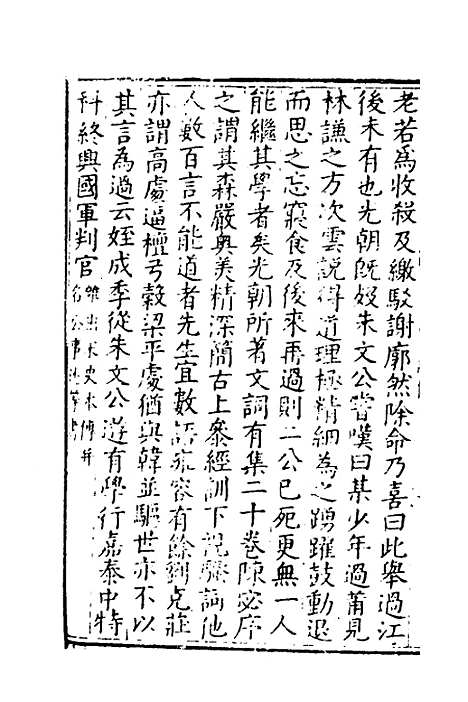 老若爲收殺及繳駁謝廓然除命乃喜曰此舉過江
後未有也光朝旣歿朱文公嘗嘆曰某少年過莆見
林謙之方次雲說得道理極精細為之踴躍鼓動退
而思之忘寢食及後來再過則二公已死更無一人
能繼其學者矣光朝所著文詞有集二十卷陳宓序
之謂其森嚴奥美精深簡古上叅經訓下視騷詞他
人數百言不能道者先生宜數語雍容有餘劉克莊
亦謂高處逼檀弓穀梁平處猶與韓並驅世亦不以
其言為過云姪成季從朱文公遊有學行嘉泰中特
科終興國軍判官雜出宋史本傳并
名公事述等書